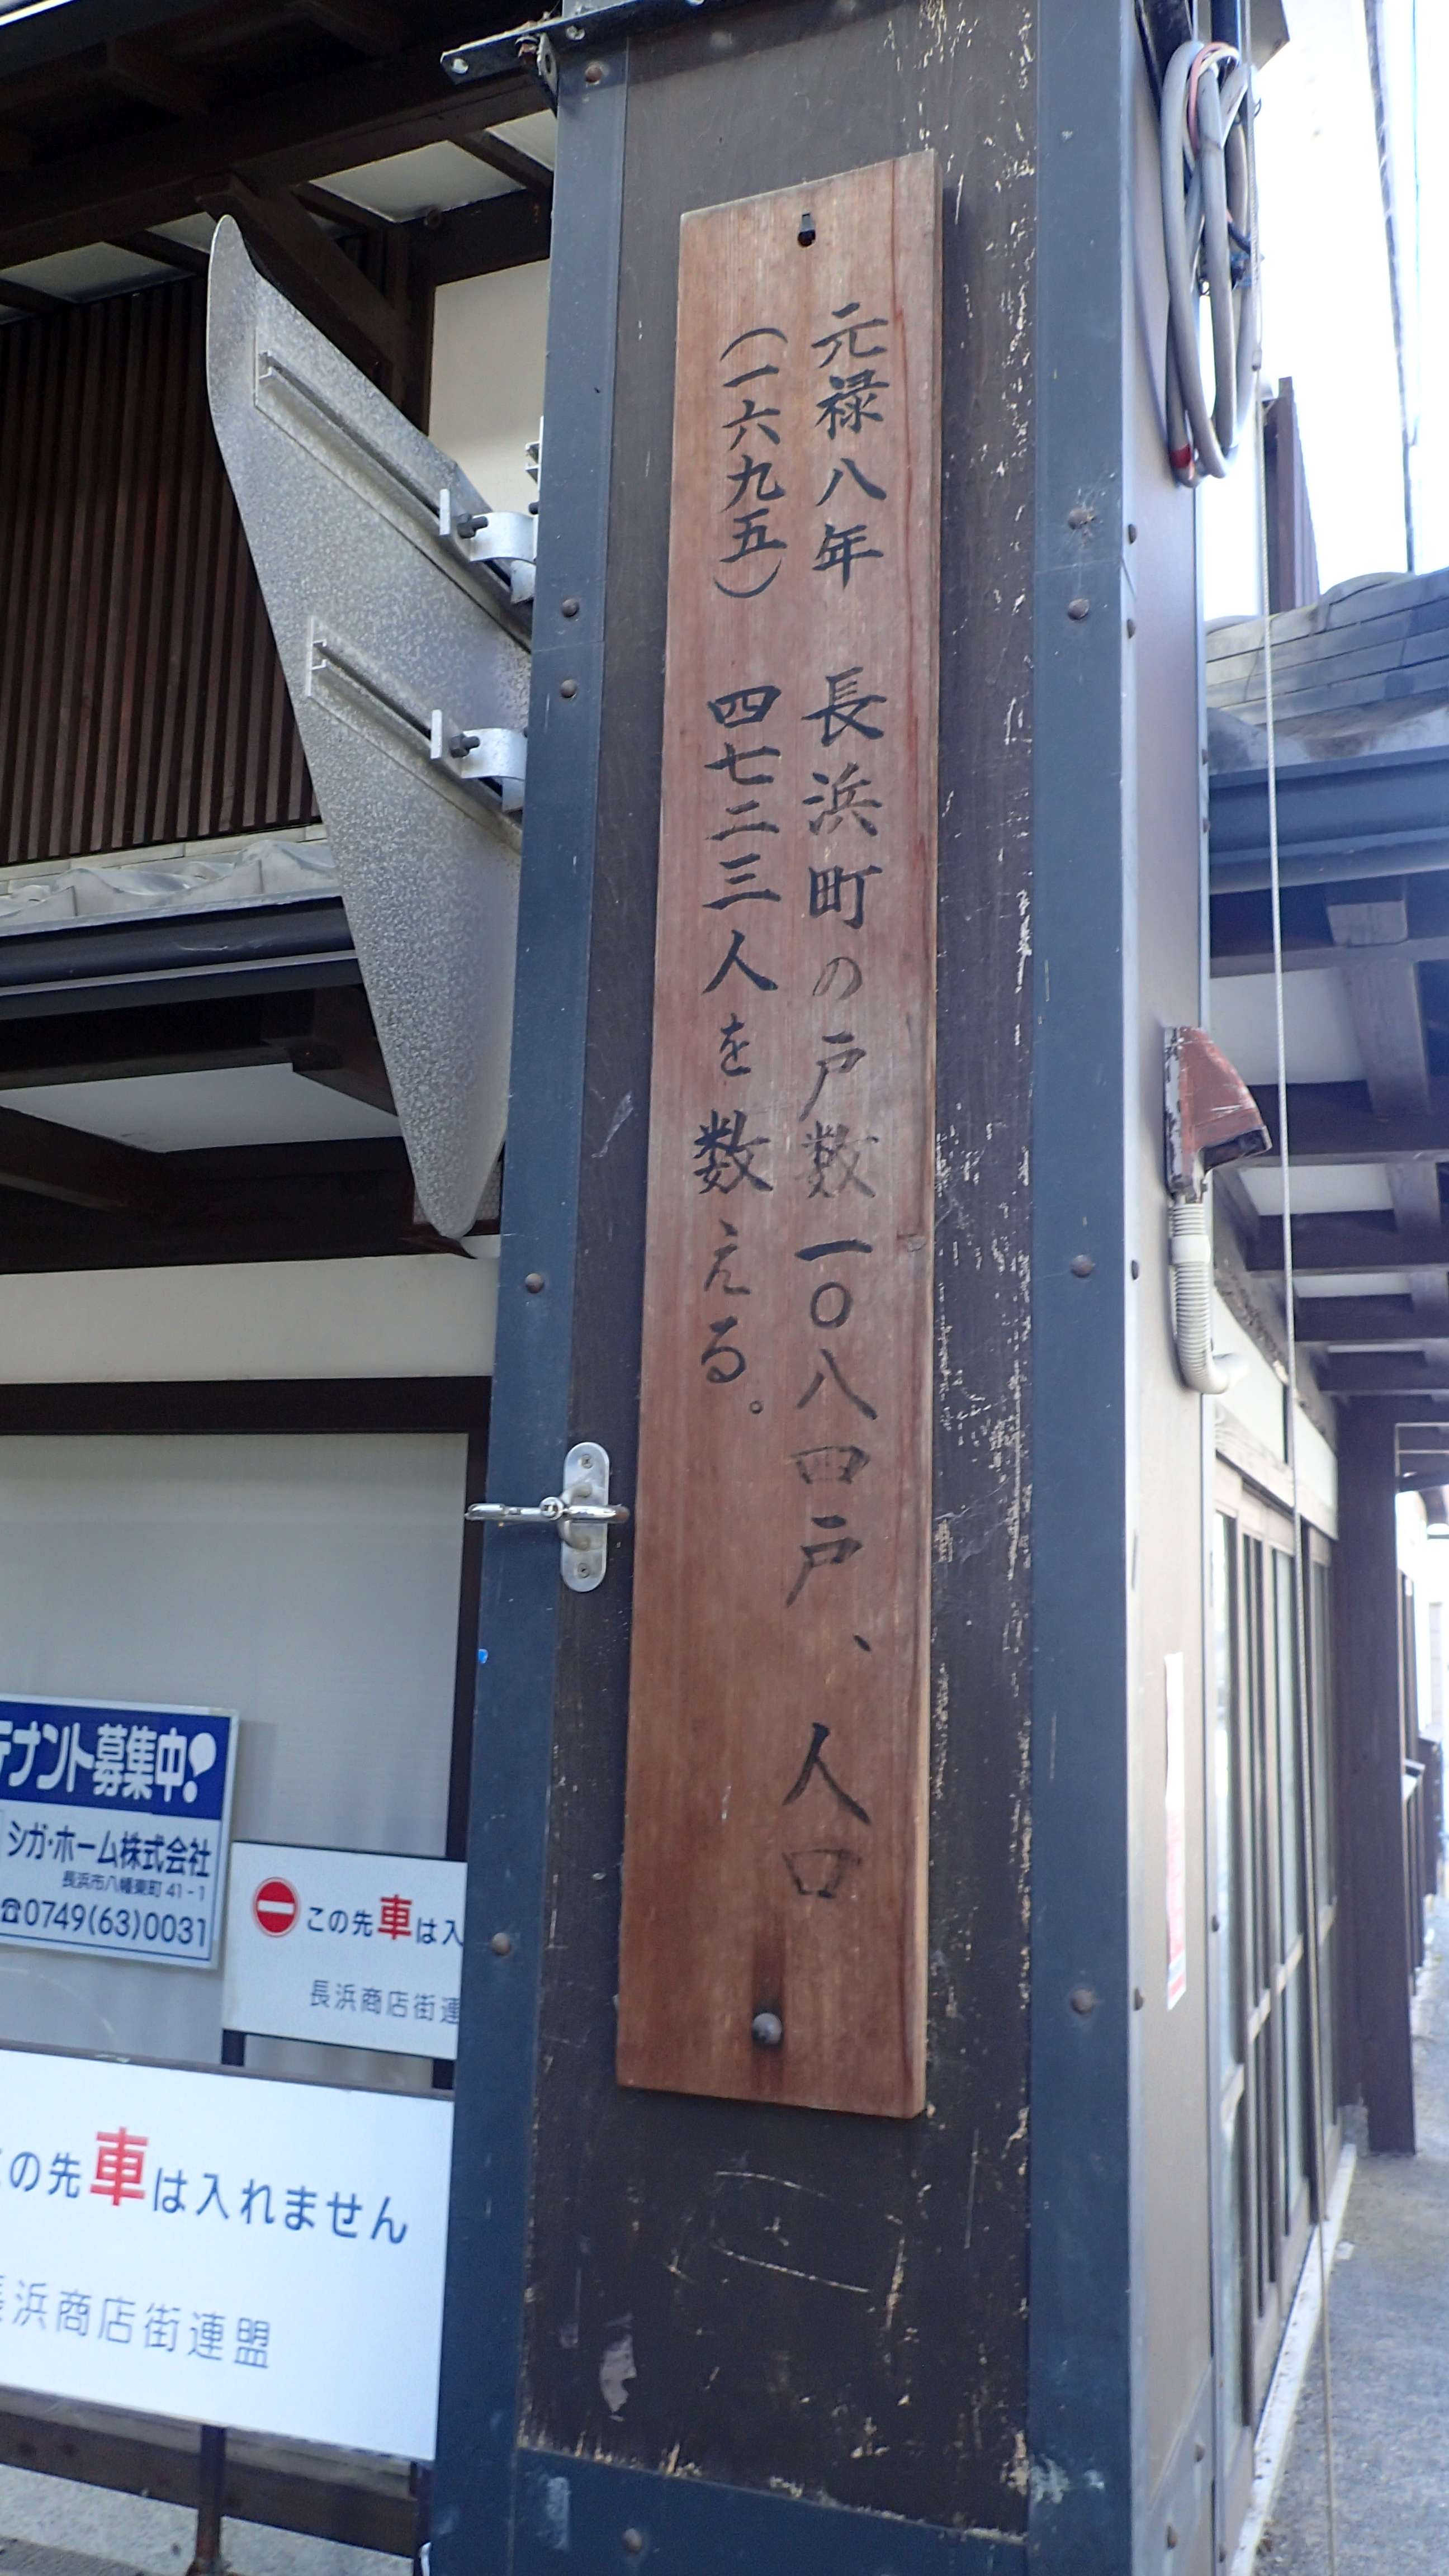 元禄八年 長浜町の戸数一〇八四戸、人口
(一六九五) 四七二三人を数える。
テナント募集中!
シガ・ホーム株式会社
長浜市八幡東町41-1
☎0749(63)0031
この先車は入
長浜商店街連
この先車は入れません
長浜商店街連盟